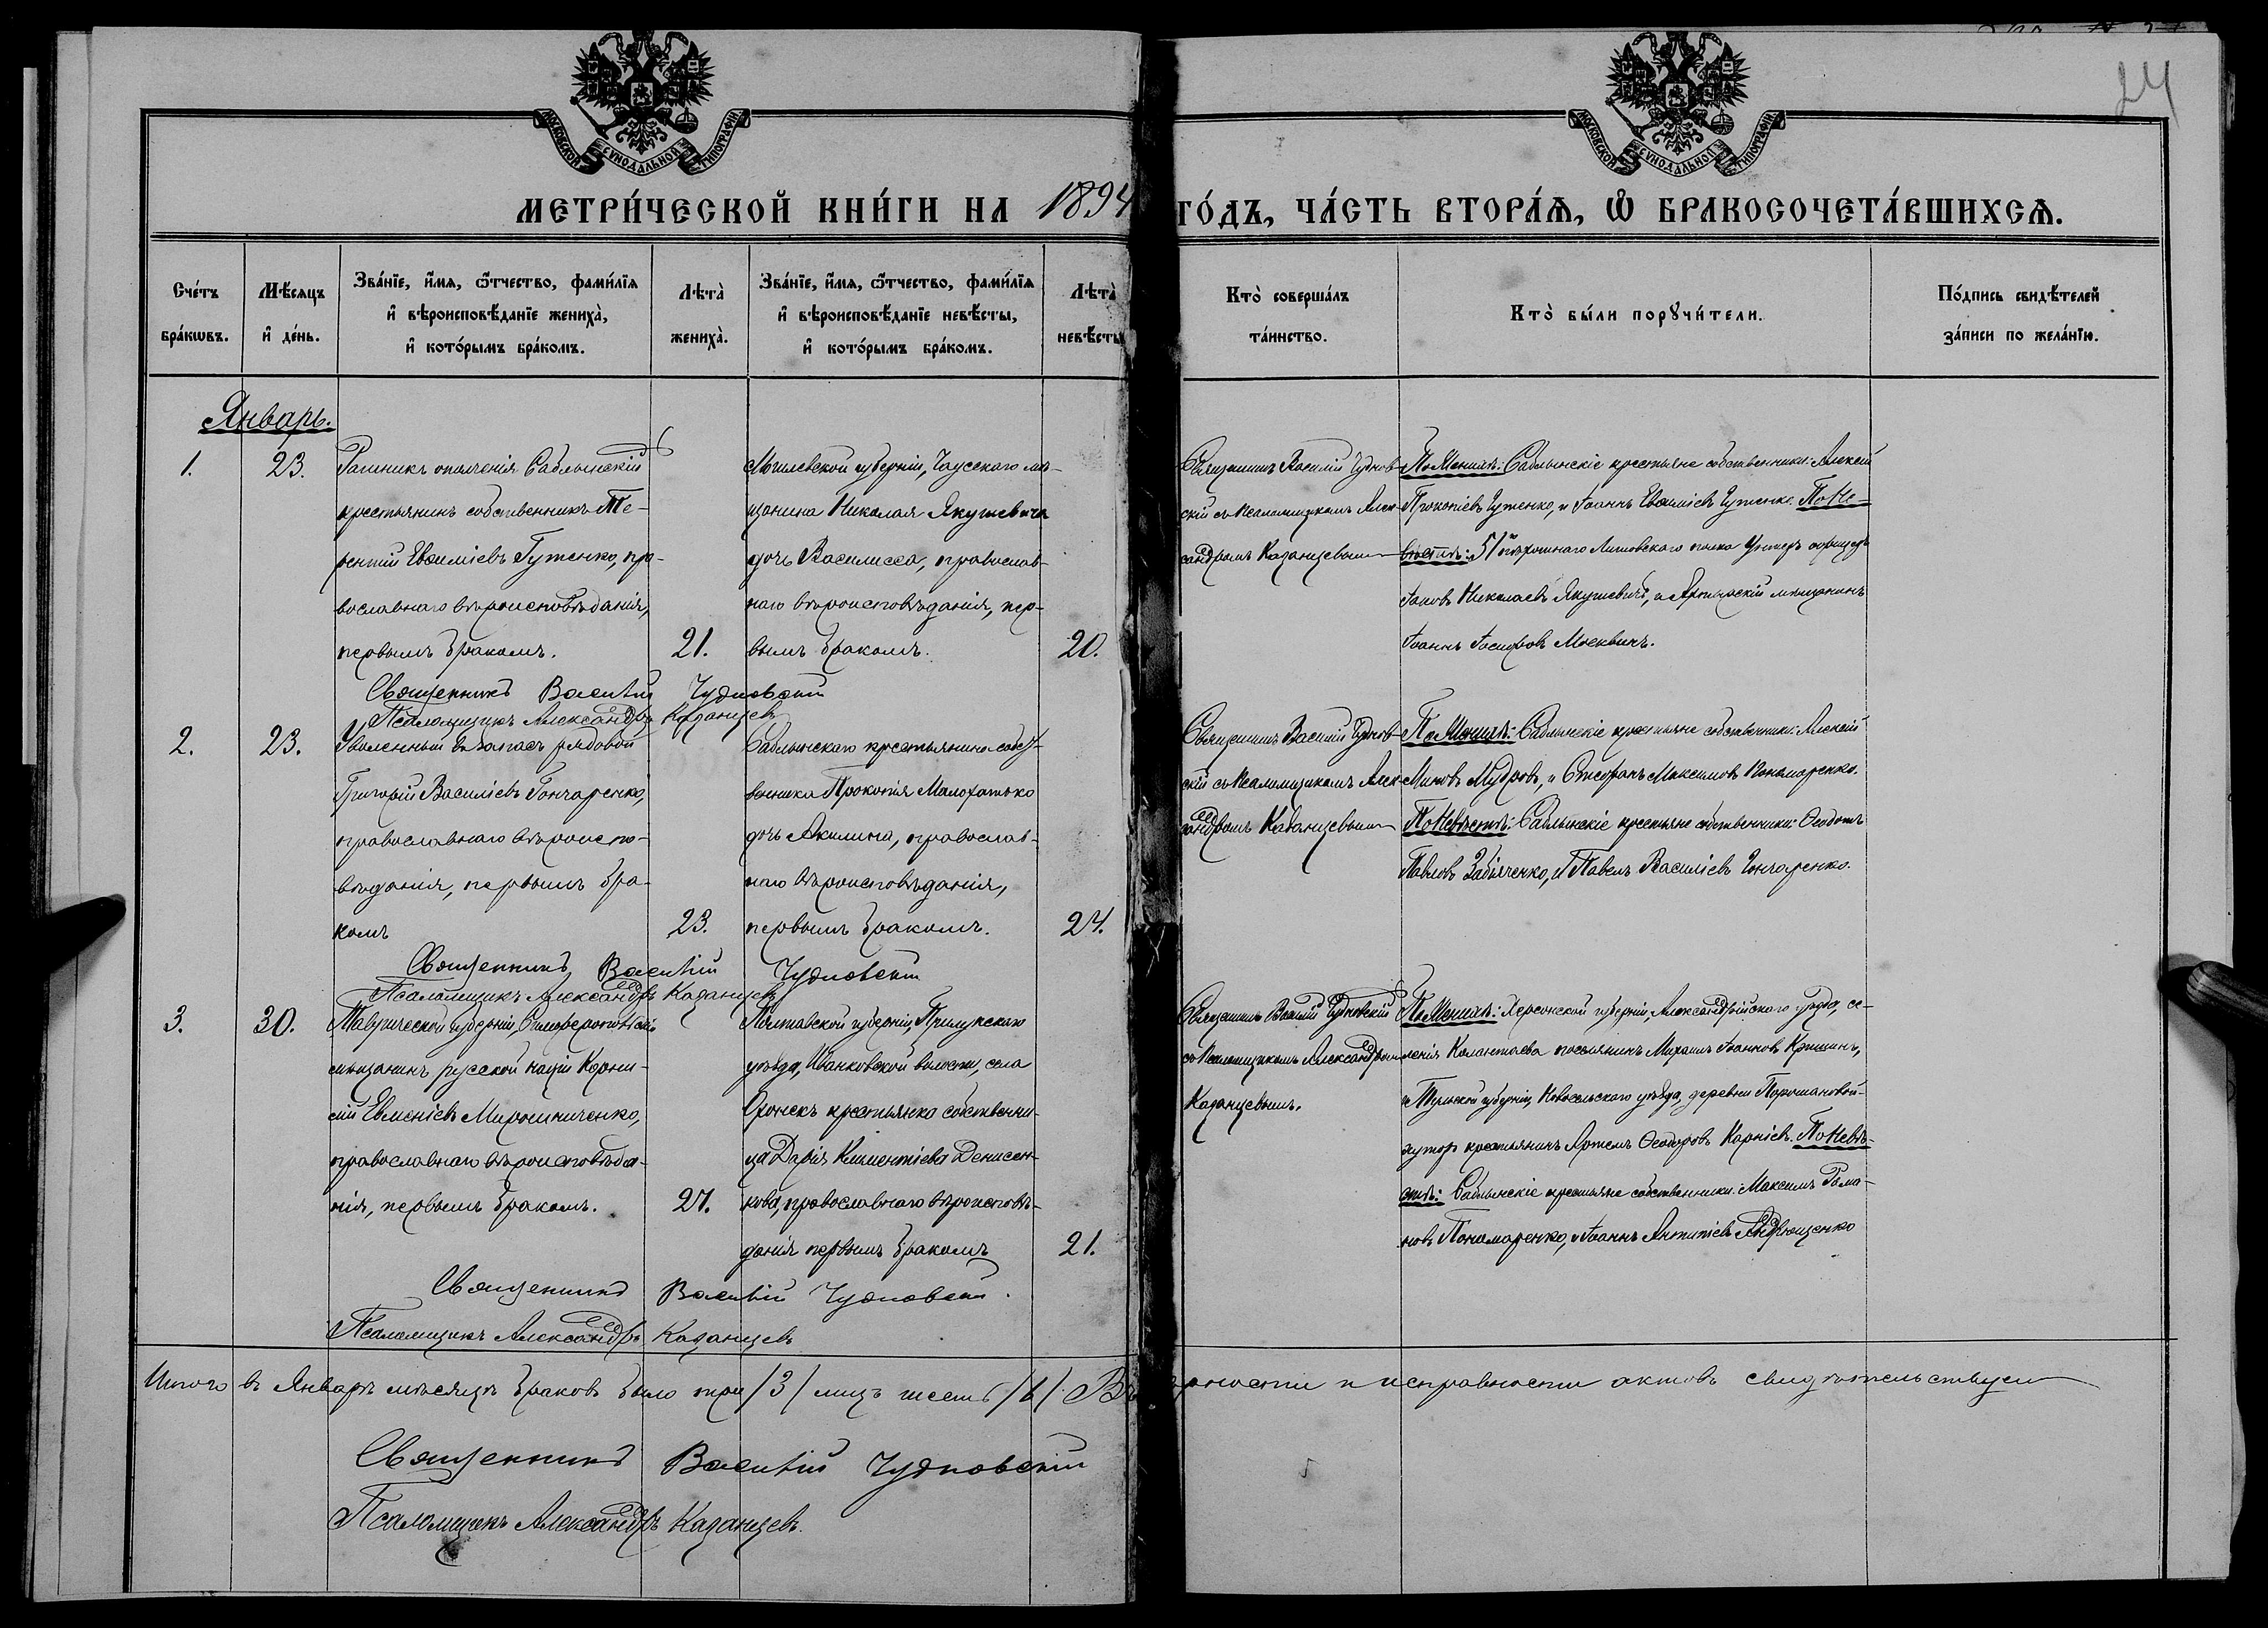 24
МОСКОВСКОЙ СѴНОДАЛЬНОЙ ТИПОГРАФІИ
МОСКОВСКОЙ СѴНОДАЛЬНОЙ ТИПОГРАФІИ
МЕТРИ́ЧЕСКОЙ КНИ́ГИ НА 1894 ГО́ДЪ, ЧА́СТЬ ВТОРА́Ѧ, Ѽ БРАКОСОЧЕТА́ВШИХСѦ.
Сче́тъ
бра́кѡвъ.
Мѣ́сяцъ
и҆ де́нь.
Зва́нїе, и҆́мѧ, ѻ҆́тчество, фами́лїѧ
и҆ вѣроисповѣ́данїе жениха̀,
и҆ кото́рымъ бра́комъ.
Лѣта̀
жениха̀.
Зва́нїе, и҆́мѧ, ѻ҆́тчество, фами́лїѧ
и҆ вѣроисповѣ́данїе невѣ́сты,
и҆ кото́рымъ бра́комъ.
Лѣта̀
невѣ́сты
Кто̀ соверша́лъ
та́инство.
Кто̀ бы́ли порꙋчи́тели.
По́дпись свидѣ́телей
за́писи по жела́нїю.
Январь.
1.
23.
Ратникъ ополченія Саблынскій
крестьянинъ собственникъ Те-
рентій Евѳиміевъ Гутенко, пра-
вославнаго вѣроисповѣданія,
первымъ бракомъ.
21.
Могилевской губерніи, Чаусскаго мѣ-
щанина Николая Якушевича
дочь Василисса, православ-
наго вѣроисповѣданія, пер-
вымъ бракомъ.
20.
Священникъ Василій Чуднов-
скій съ Псаломщикомъ Алек-
сандромъ Казанцевымъ
По Женихѣ: Саблынскіе крестьяне собственники: Алексій
Прокопіевъ Гутенко, и Іоаннъ Евѳиміевъ Гутенко. По Не-
вѣстѣ: 51го пѣхотнаго Литовскаго полка Унтеръ офицеръ
Іаковъ Николаевъ Якушевичъ, и мѣщанинъ
Іоаннъ Іосифовъ Москвинъ.
Священникъ Василій Чудновскій
Псаломщикъ Александръ Казанцевъ
2.
23.
Уволенный въ запасъ рядовой
Григорій Василіевъ Гончаренко,
православнаго вѣроиспо-
вѣданія, первымъ бра-
комъ
23.
Саблынскаго крестьянина собст-
венника Прокопія Малохатько
дочь Акилина, православ-
наго вѣроисповѣданія,
первымъ бракомъ.
24.
Священникъ Василій Чуднов-
скій съ Псаломщикомъ Алек-
сандромъ Казанцевымъ
По Женихѣ: Саблынскіе крестьяне собственники: Алексій
Мудровъ, и Стефанъ Максимовъ Пономаренко.
По Невѣстѣ: Саблынскіе крестьяне собственники: Ѳеодотъ
Павловъ Забіяченко, и Павелъ Василіевъ Гончаренко.
Священникъ Василій Чудновскій
Псаломщикъ Александръ Казанцевъ
3.
30.
Таврической губерніи, Симферопольскій
мѣщанинъ русской націи Корни-
лій Евменіевъ Мирошниченко,
православнаго вѣроисповѣда-
нія, первымъ бракомъ.
27.
Полтавской губерніи, Прилукскаго
уѣзда, Иванковской волости, села
крестьянка собственни-
ца Дарія Климентіева Денисен-
кова, православнаго вѣроисповѣ-
данія первымъ бракомъ
21.
Священникъ Василій Чудновскій
съ Псаломщикомъ Александромъ
Казанцевымъ.
По Женихѣ: Херсонской губерніи, Александрійскаго уѣзда, се-
ленія Калантаева поселянинъ Михаилъ Іоанновъ
и Тульской губерніи, Новосильскаго уѣзда, деревни
хуторъ крестьянинъ Артемъ Ѳеодоровъ Карпіевъ. По Невѣ-
стѣ: Саблынскіе крестьяне собственники: Максимъ Рома-
новъ Пономаренко, и Іоаннъ Антипіевъ Андрющенко
Священникъ Василій Чудновскій
Псаломщикъ Александръ Казанцевъ
Итого въ Январѣ мѣсяцѣ браковъ было три /3/ лицъ шесть /6/ Вѣрности и исправности актовъ свидѣтельствуемъ
Священникъ Василій Чудновскій
Псаломщикъ Александръ Казанцевъ.